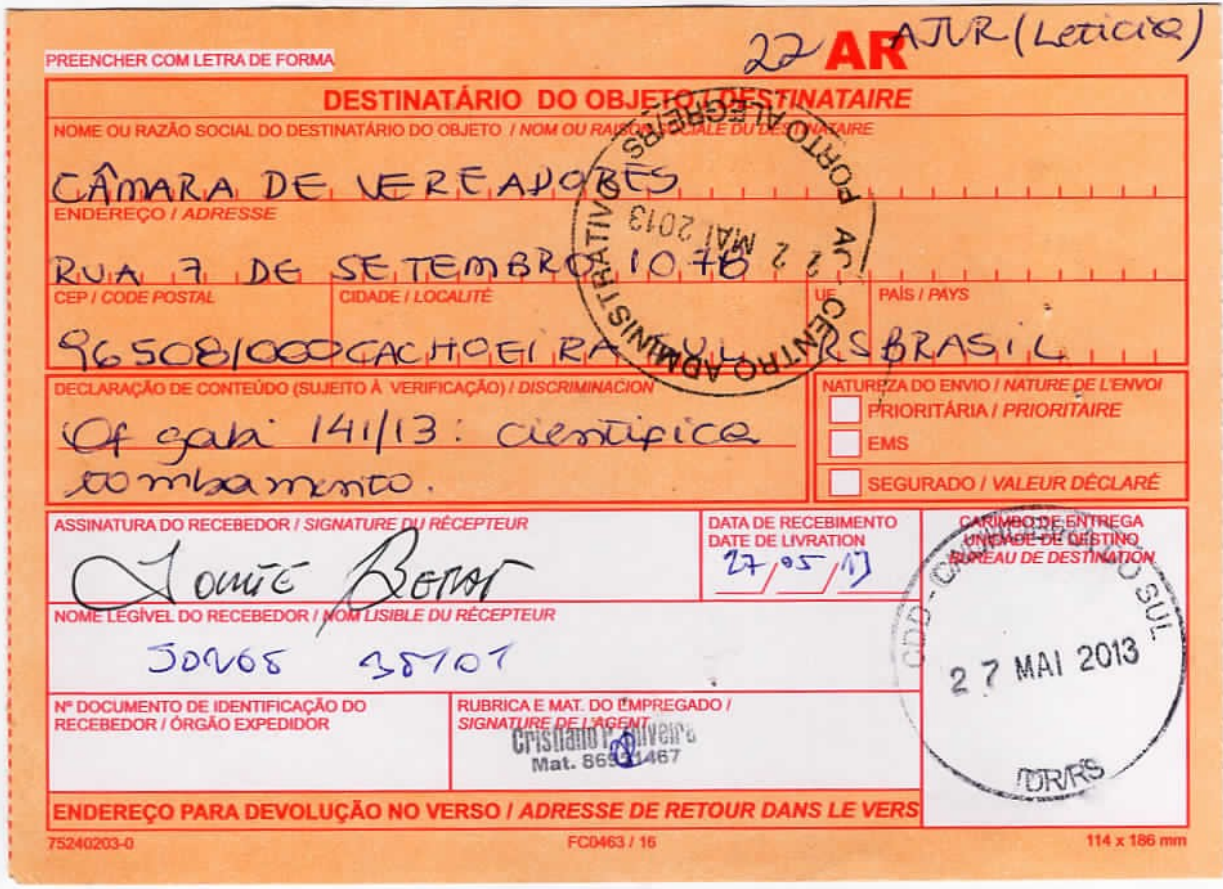 22 AR AJUR (Leticia)
PREENCHER COM LETRA DE FORMA
DESTINATÁRIO DO OBJETO / DESTINATAIRE
NOME OU RAZÃO SOCIAL DO DESTINATÁRIO DO OBJETO / NOM OU RAISON SOCIALE DU DESTINATAIRE
CÂMARA DE VEREADORES
ENDEREÇO / ADRESSE
RUA 7 DE SETEMBRO, 1078
CEP / CODE POSTAL CIDADE / LOCALITÉ UF PAÍS / PAYS
96508/000 CACHOEIRA SUL RS BRASIL
AC CENTRO ADMINISTRATIVO PORTO ALEGRE/RS
22 MAI 2013
DECLARAÇÃO DE CONTEÚDO (SUJEITO À VERIFICAÇÃO) / DISCRIMINACION
Of gabi 141/13: cientifica
tombamento.
NATUREZA DO ENVIO / NATURE DE L'ENVOI
PRIORITÁRIA / PRIORITAIRE
EMS
SEGURADO / VALEUR DÉCLARÉ
ASSINATURA DO RECEBEDOR / SIGNATURE DU RÉCEPTEUR
DATA DE RECEBIMENTO
DATE DE LIVRATION
27/05/13
CARIMBO DE ENTREGA
UNIDADE DE DESTINO
BUREAU DE DESTINATION
CDD - CACHOEIRA DO SUL
27 MAI 2013
/DR/RS
NOME LEGÍVEL DO RECEBEDOR / NOM LISIBLE DU RÉCEPTEUR
Nº DOCUMENTO DE IDENTIFICAÇÃO DO
RECEBEDOR / ÓRGÃO EXPEDIDOR
RUBRICA E MAT. DO EMPREGADO /
SIGNATURE DE L'AGENT
Cristiano Oliveira
Mat.
ENDEREÇO PARA DEVOLUÇÃO NO VERSO / ADRESSE DE RETOUR DANS LE VERS
75240203-0 FC0463 / 16 114 x 186 mm